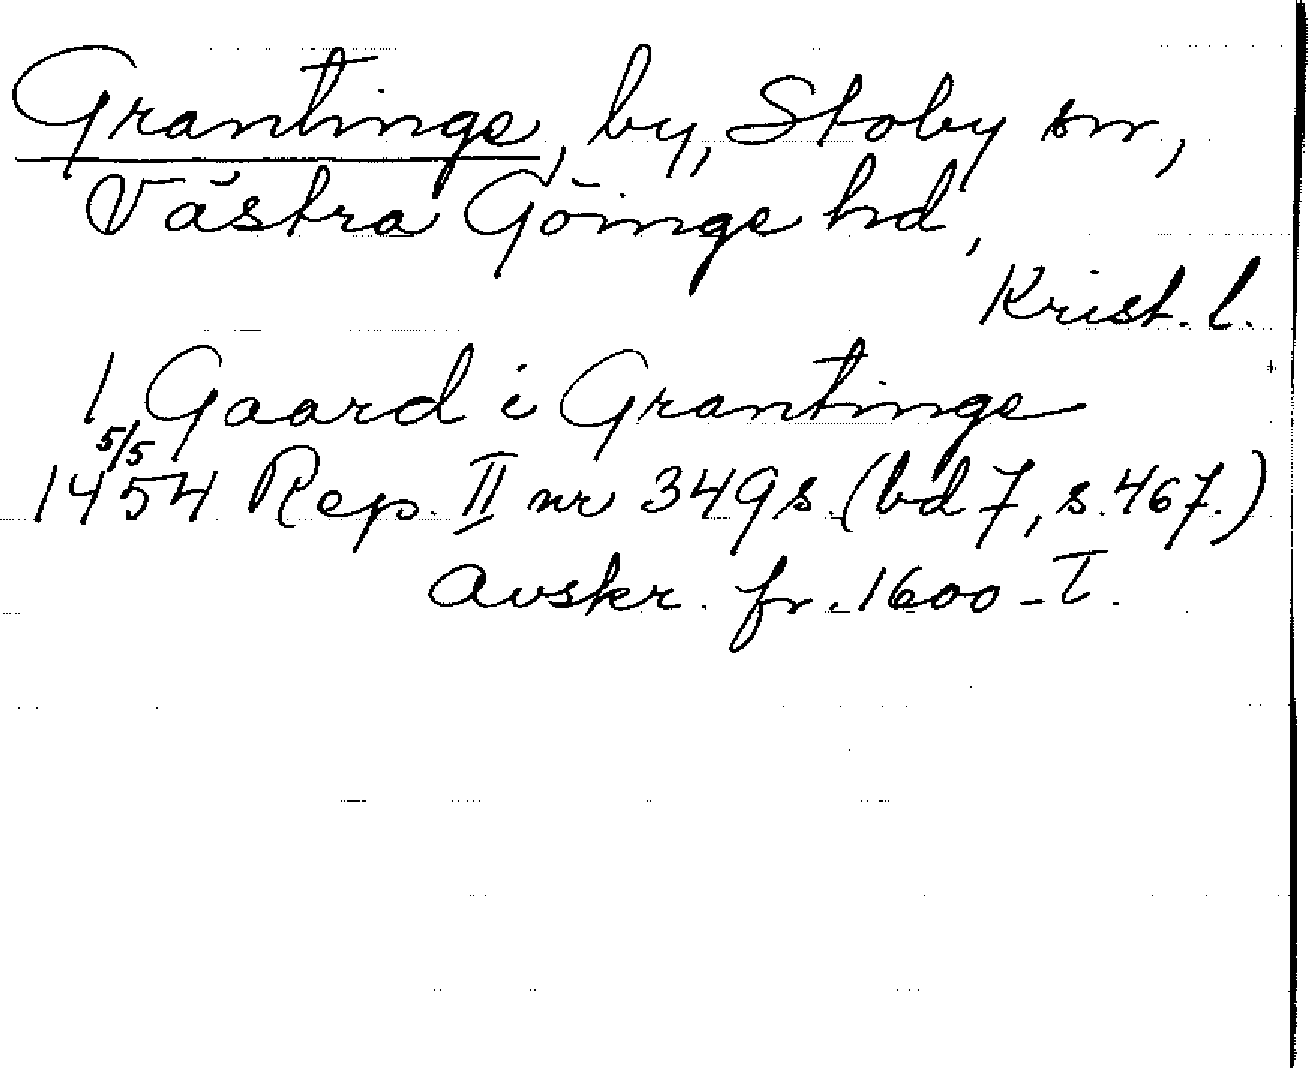 Grantinge, by, Stoby sn,
Västra Göinge hd,
Krist. l.
1 Gaard i Grantinge
5/5
1454 Rep. II nr 349 s. (bd 7, s. 467.)
Avskr. fr. 1600-T.